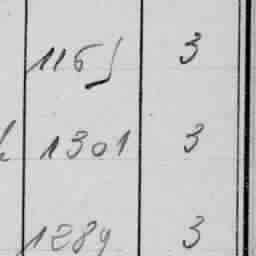 1165 3
1301 3
1289 3